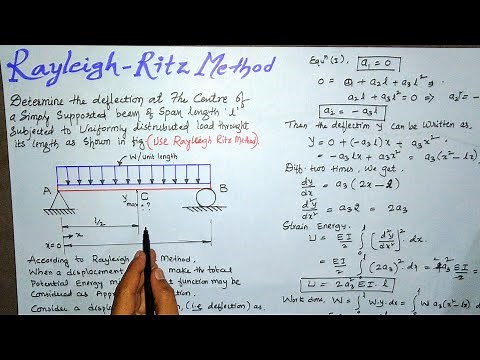 Rayleigh-Ritz Method
Determine the deflection at The Centre of
a Simply Supported beam of Span length 'l'
Subjected to Uniformly distributed load throught
its length as Shown in fig (Use Rayleigh Ritz Method)
W/unit length
A
B
C
y max = ?
l/2
x
x=0
l
According to Rayleigh Method.
When a displacement make the total
Potential Energy function may be
Considered as
Consider a deflection) as
Equⁿ (I), a₁ = 0
0 = 0 + a₂l + a₃l²
a₂l + a₃l² = 0 ⇒
a₂ = -a₃l
Then the deflection y Can be Written as,
y = 0 + (-a₃l)x + a₃x²
= -a₃lx + a₃x² = a₃(x²-lx)
Diff. two times, We get.
dy/dx = a₃(2x-l)
d²y/dx² = a₃2 = 2a₃
Strain Energy.
U = EI/2 ∫₀ˡ (d²y/dx²)² dx
= EI/2 ∫₀ˡ (2a₃)² dx
U = 2a₃² EI. l
Work done, W = ∫₀ˡ W.y.dx = ∫₀ˡ W a₃(x²-lx)